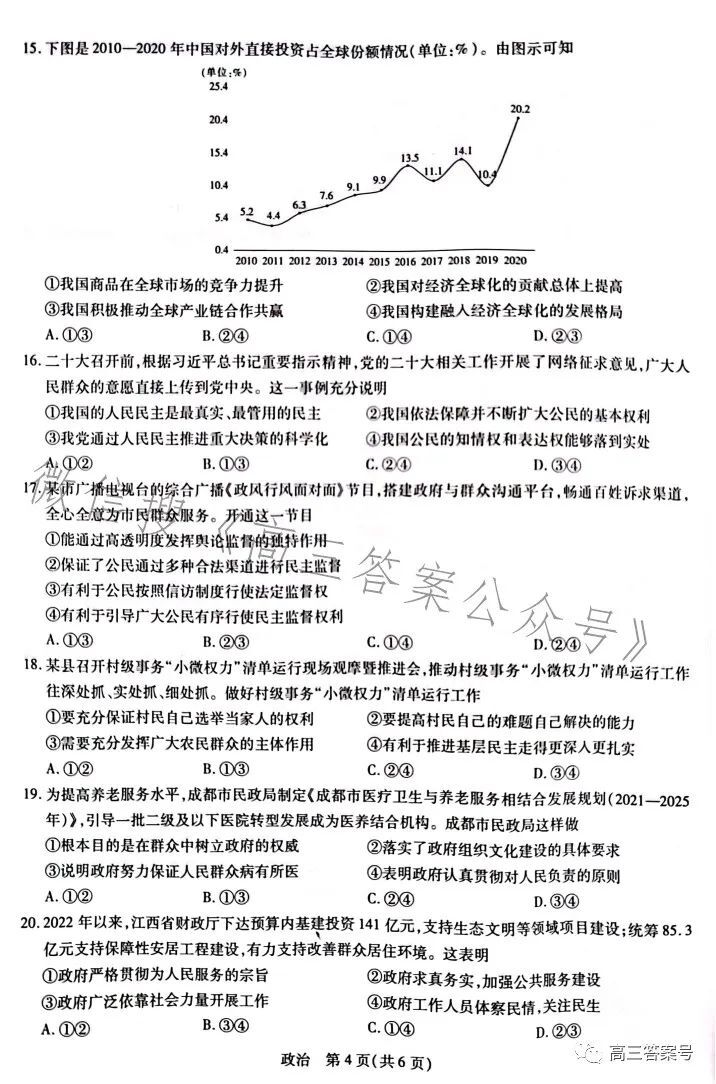 15.下图是2010—2020年中国对外直接投资占全球份额情况(单位:%)。由图示可知
(单位:%)
25.4
20.4
15.4
10.4
5.4
0.4
5.2 4.4 6.3 7.6 9.1 9.9 13.5 11.1 14.1 10.4 20.2
2010 2011 2012 2013 2014 2015 2016 2017 2018 2019 2020
①我国商品在全球市场的竞争力提升 ②我国对经济全球化的贡献总体上提高
③我国积极推动全球产业链合作共赢 ④我国构建融入经济全球化的发展格局
A.①③ B.②④ C.①④ D.②③
16.二十大召开前,根据习近平总书记重要指示精神,党的二十大相关工作开展了网络征求意见,广大人
民群众的意愿直接上传到党中央。这一事例充分说明
①我国的人民民主是最真实、最管用的民主 ②我国依法保障并不断扩大公民的基本权利
③我党通过人民民主推进重大决策的科学化 ④我国公民的知情权和表达权能够落到实处
A.①② B.①③ C.②④ D.③④
17.某市广播电视台的综合广播《政风行风面对面》节目,搭建政府与群众沟通平台,畅通百姓诉求渠道,
全心全意为市民群众服务。开通这一节目
①能通过高透明度发挥舆论监督的独特作用
②保证了公民通过多种合法渠道进行民主监督
③有利于公民按照信访制度行使法定监督权
④有利于引导广大公民有序行使民主监督权利
A.①③ B.②③ C.①④ D.②④
18.某县召开村级事务“小微权力”清单运行现场观摩暨推进会,推动村级事务“小微权力”清单运行工作
往深处抓、实处抓、细处抓。做好村级事务“小微权力”清单运行工作
①要充分保证村民自己选举当家人的权利 ②要提高村民自己的难题自己解决的能力
③需要充分发挥广大农民群众的主体作用 ④有利于推进基层民主走得更深入更扎实
A.①② B.①③ C.②④ D.③④
19.为提高养老服务水平,成都市民政局制定《成都市医疗卫生与养老服务相结合发展规划(2021—2025
年)》,引导一批二级及以下医院转型发展成为医养结合机构。成都市民政局这样做
①根本目的是在群众中树立政府的权威 ②落实了政府组织文化建设的具体要求
③说明政府努力保证人民群众病有所医 ④表明政府认真贯彻对人民负责的原则
A.①② B.①③ C.②④ D.③④
20.2022年以来,江西省财政厅下达预算内基建投资141亿元,支持生态文明等领域项目建设;统筹85.3
亿元支持保障性安居工程建设,有力支持改善群众居住环境。这表明
①政府严格贯彻为人民服务的宗旨 ②政府求真务实,加强公共服务建设
③政府广泛依靠社会力量开展工作 ④政府工作人员体察民情,关注民生
A.①② B.③④ C.①④ D.②③
政治 第4页(共6页)
微信搜《高三答案公众号》
高三答案号